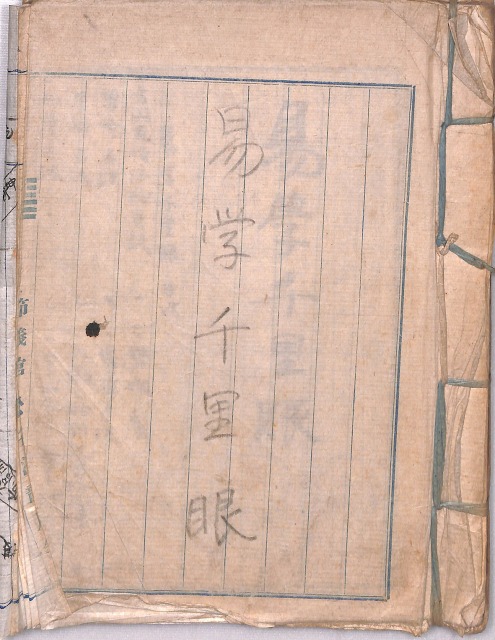 易学千里眼